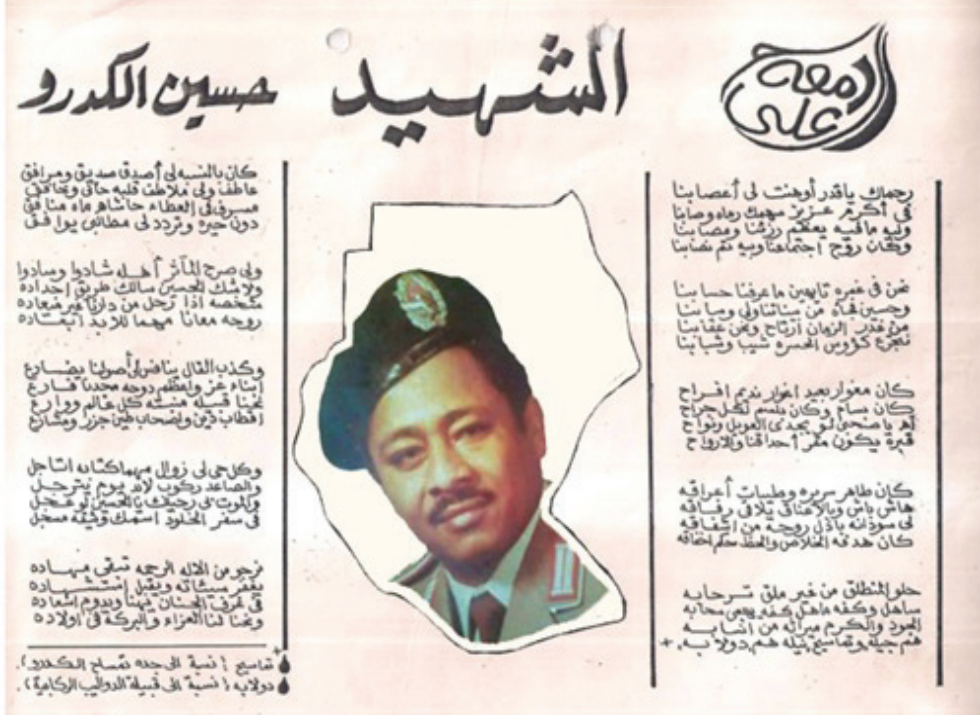 دمعة على
الشهيد
حسين الكدرو
رحماك ياقدر أوهنت لى أعصابنا
فى أكرم عزيز سهمك رماه وصابنا
وبه مافيه يعظم رزئنا ومصابنا
وكان روح اجتماعنا وبيه تم نصابنا
نحن فى غمره تايهين ماعرفنا حسابنا
وحسين فجأه من بيناتنا
من غدر الزمان ارتاح ونحن عقابنا
نتجرع كؤوس الحسره شيب وشبابنا
كان مغوار بعيد اغوار نديم افراح
كان بسام وكان بلسم لكل جراح
آه ياصحى لو يجدى العويل ونواح
قبرة يكون مقر أحداقنا والارواح
كان طاهر سريره وطيبات أعراقه
هاش باش وبالاعناق يلاقى رفاقه
لى سودانه باذل روحة من اشفاقه
كان هدفه الخلاص والحظ حكم اخفاقه
حلو المنطلق من غير ملق تسرحابه
ساهل وكفه ماهل كفه سحابه
الجود والكرم ميراثه من انسابه
هم جبله وتماسيح نيله هم دولابه +
كان بالنسبه لى أصدق صديق ومرافق
عاطف ولى ملاطف قلبه حانى وخافق
مسرف فى العطاء حاشاهو ماه منافق
دون حيره وتردد لى مطالبى يوافق
ولى صرح المآثر أهله شادوا وسادوا
ولاشك الحسين سالك طريق اجداده
شخصه اذا رحل من دارنا غير معاده
روحه معانا مهما للابد ابتعاده
وكذب القال بناضر لى أصولنا يضارع
ابناء عز واعظم دوحه مجدنا فارع
نحنا قبله كل عالم ووارع
اقطاب دين واصحاب طين جزر ومشارع
وكل حى لى زوال مهما كتابه اتاجل
والصاعد ركوب لابد يوم يترجل
والموت لى رحيلك يالحسين لو عجل
فى سفر الخلود اسمك وثيقه مسجل
نرجو من الاله الرحمه تسقى مهاده
يغفر سيئاته ويقبل استشهاده
فى غرف الجنان يهنا ويدوم اسعاده
ونحنا لنا العزاء والبركة فى اولاده
+ تماسيح ( نسبة الى جده تمساح الكدرو ).
دولابه ( نسبة الى قبيلة الدواليب الركابية ).